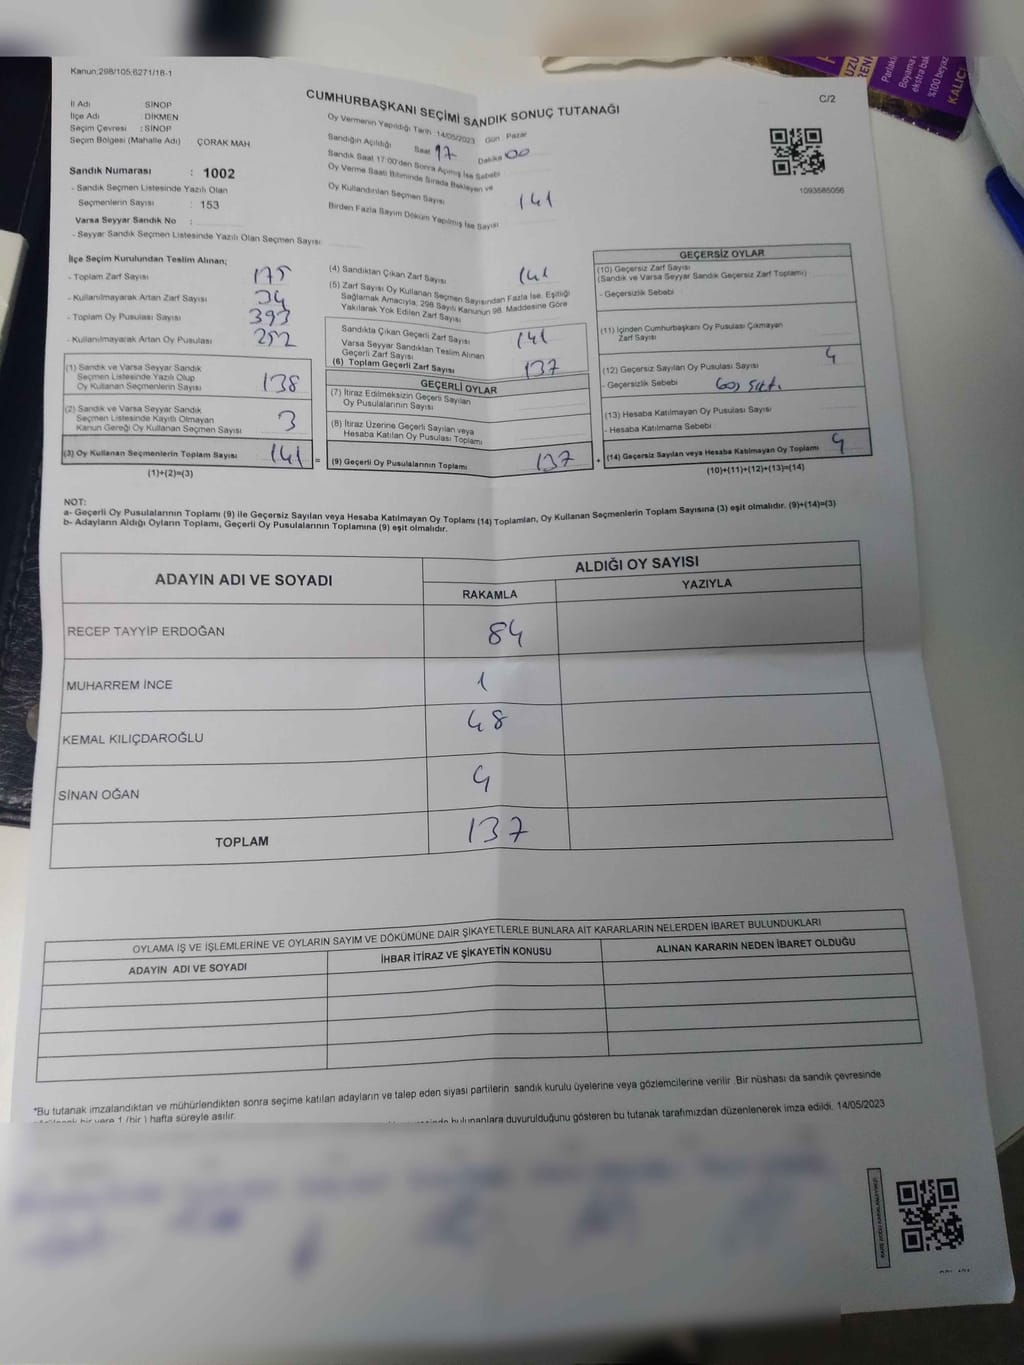 Kanun:298/105;6271/18-1
CUMHURBAŞKANI SEÇİMİ SANDIK SONUÇ TUTANAĞI
C/2
İl Adı SİNOP
İlçe Adı : DİKMEN
Seçim Çevresi : SİNOP
Seçim Bölgesi (Mahalle Adı) ÇORAK MAH.
Oy Vermenin Yapıldığı Tarih 14/05/2023 Gün Pazar
Sandığın Açıldığı Saat 17 Dakika 00
Sandık Saat 17:00'den Sonra Açılmış İse Sebebi
Oy Verme Saati Bitiminde Sırada Bekleyen ve
Oy Kullandırılan Seçmen Sayısı 141
Birden Fazla Sayım Döküm Yapılmış İse Sayısı
1093585056
Sandık Numarası : 1002
- Sandık Seçmen Listesinde Yazılı Olan
Seçmenlerin Sayısı : 153
Varsa Seyyar Sandık No :
- Seyyar Sandık Seçmen Listesinde Yazılı Olan Seçmen Sayısı:
İlçe Seçim Kurulundan Teslim Alınan;
- Toplam Zarf Sayısı 175
- Kullanılmayarak Artan Zarf Sayısı 34
- Toplam Oy Pusulası Sayısı 393
- Kullanılmayarak Artan Oy Pusulası 252
(1) Sandık ve Varsa Seyyar Sandık
Seçmen Listesinde Yazılı Olup
Oy Kullanan Seçmenlerin Sayısı 138
(2) Sandık ve Varsa Seyyar Sandık
Seçmen Listesinde Kayıtlı Olmayan
Kanun Gereği Oy Kullanan Seçmen Sayısı 3
(3) Oy Kullanan Seçmenlerin Toplam Sayısı 141 =
(1)+(2)=(3)
(4) Sandıktan Çıkan Zarf Sayısı 141
(5) Zarf Sayısı Oy Kullanan Seçmen Sayısından Fazla İse, Eşitliği
Sağlamak Amacıyla; 298 Sayılı Kanunun 98. Maddesine Göre
Yakılarak Yok Edilen Zarf Sayısı
Sandıkta Çıkan Geçerli Zarf Sayısı 141
Varsa Seyyar Sandıktan Teslim Alınan
Geçerli Zarf Sayısı
(6) Toplam Geçerli Zarf Sayısı 137
GEÇERLİ OYLAR
(7) İtiraz Edilmeksizin Geçerli Sayılan
Oy Pusulalarının Sayısı
(8) İtiraz Üzerine Geçerli Sayılan veya
Hesaba Katılan Oy Pusulası Toplamı
(9) Geçerli Oy Pusulalarının Toplamı 137 +
GEÇERSİZ OYLAR
(10) Geçersiz Zarf Sayısı
(Sandık ve Varsa Seyyar Sandık Geçersiz Zarf Toplamı)
- Geçersizlik Sebebi
(11) İçinden Cumhurbaşkanı Oy Pusulası Çıkmayan
Zarf Sayısı
(12) Geçersiz Sayılan Oy Pusulası Sayısı 4
- Geçersizlik Sebebi
(13) Hesaba Katılmayan Oy Pusulası Sayısı
- Hesaba Katılmama Sebebi
(14) Geçersiz Sayılan veya Hesaba Katılmayan Oy Toplamı 4
(10)+(11)+(12)+(13)=(14)
NOT:
a- Geçerli Oy Pusulalarının Toplamı (9) ile Geçersiz Sayılan veya Hesaba Katılmayan Oy Toplamı (14) Toplamları, Oy Kullanan Seçmenlerin Toplam Sayısına (3) eşit olmalıdır. (9)+(14)=(3)
b- Adayların Aldığı Oyların Toplamı, Geçerli Oy Pusulalarının Toplamına (9) eşit olmalıdır.
ADAYIN ADI VE SOYADI ALDIĞI OY SAYISI
RAKAMLA YAZIYLA
RECEP TAYYİP ERDOĞAN 84
MUHARREM İNCE 1
KEMAL KILIÇDAROĞLU 48
SİNAN OĞAN 4
TOPLAM 137
OYLAMA İŞ VE İŞLEMLERİNE VE OYLARIN SAYIM VE DÖKÜMÜNE DAİR ŞİKAYETLERLE BUNLARA AİT KARARLARIN NELERDEN İBARET BULUNDUKLARI
ADAYIN ADI VE SOYADI İHBAR İTİRAZ VE ŞİKAYETİN KONUSU ALINAN KARARIN NEDEN İBARET OLDUĞU
*Bu tutanak imzalandıktan ve mühürlendikten sonra seçime katılan adayların ve talep eden siyasi partilerin sandık kurulu üyelerine veya gözlemcilerine verilir. Bir nüshası da sandık çevresinde
bir yere 1 (bir) hafta süreyle asılır.
bulunanlara duyurulduğunu gösteren bu tutanak tarafımızdan düzenlenerek imza edildi. 14/05/2023
UZU
GENİ
Parlak
Boyama
ekstra bak
%100 beyaz
KALICI